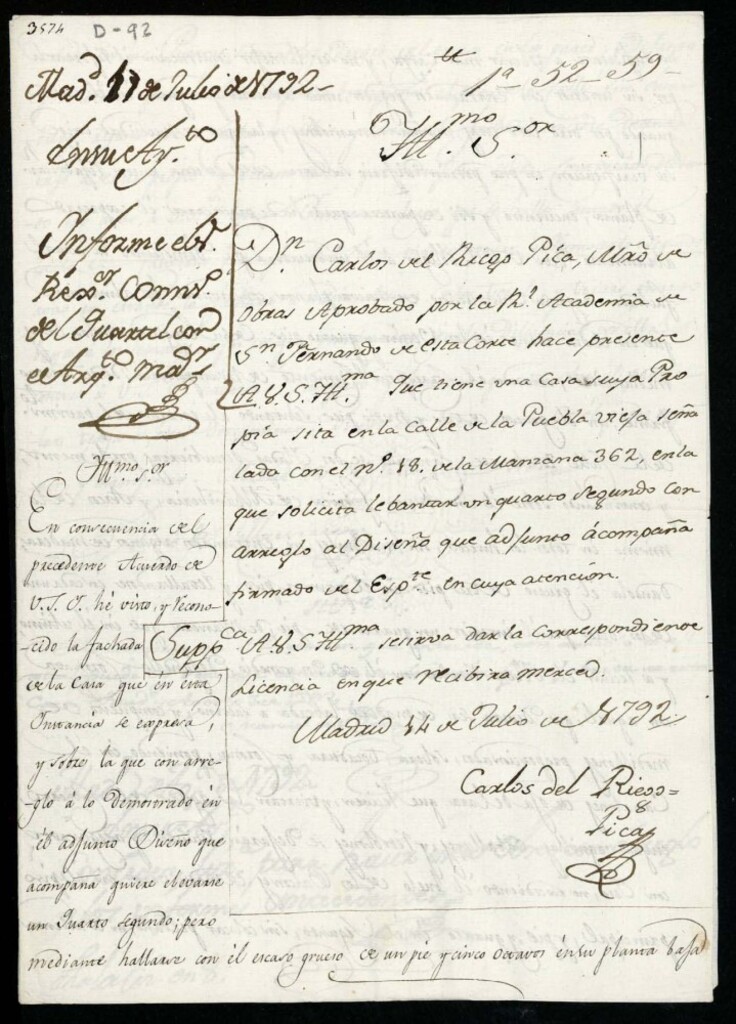 3574
D-92
Madd. 17 de Julio de 1792-
1ª 52-59-
En su Ayto
Informe el Sr.
Rexor Comiso.
del Quartel con
el Arqto. Madr.
Illmo Sor
Dn. Carlos del Riego Pica, Mro de
obras Aprobado por la Rl. Academia de
Sn. Fernando de esta Corte hace presente
A.V.S.Illma Que tiene una Casa suya Pro
pia sita en la Calle de la Puebla Vieja seña
lada con el nº. 18. de la Manzana 362, en la
que solicita lebantar un quarto segundo con
arreglo al Diseño que adjunto ácompaña
firmado del Expte en cuya atención.
Suppca A.V.S.Illma se sirva dar la correspondiente
Licencia en que recibira merced.
Madrid 14 de Julio de 1792.
Carlos del Riego=
Pica
Illmo. Sor
En consecuencia del
precedente Acuerdo de
V.S.I. hé visto, y recono
cido la fachada
de la Casa que én ésta
Instancia se expresa,
y sobre la que con arre-
glo á lo demostrado én
él adjunto Diseño que
acompaña quiere elevarse
un Quarto segundo; pero
mediante hallarse con él escaso grueso de un pie y cinco octavos én su planta baja